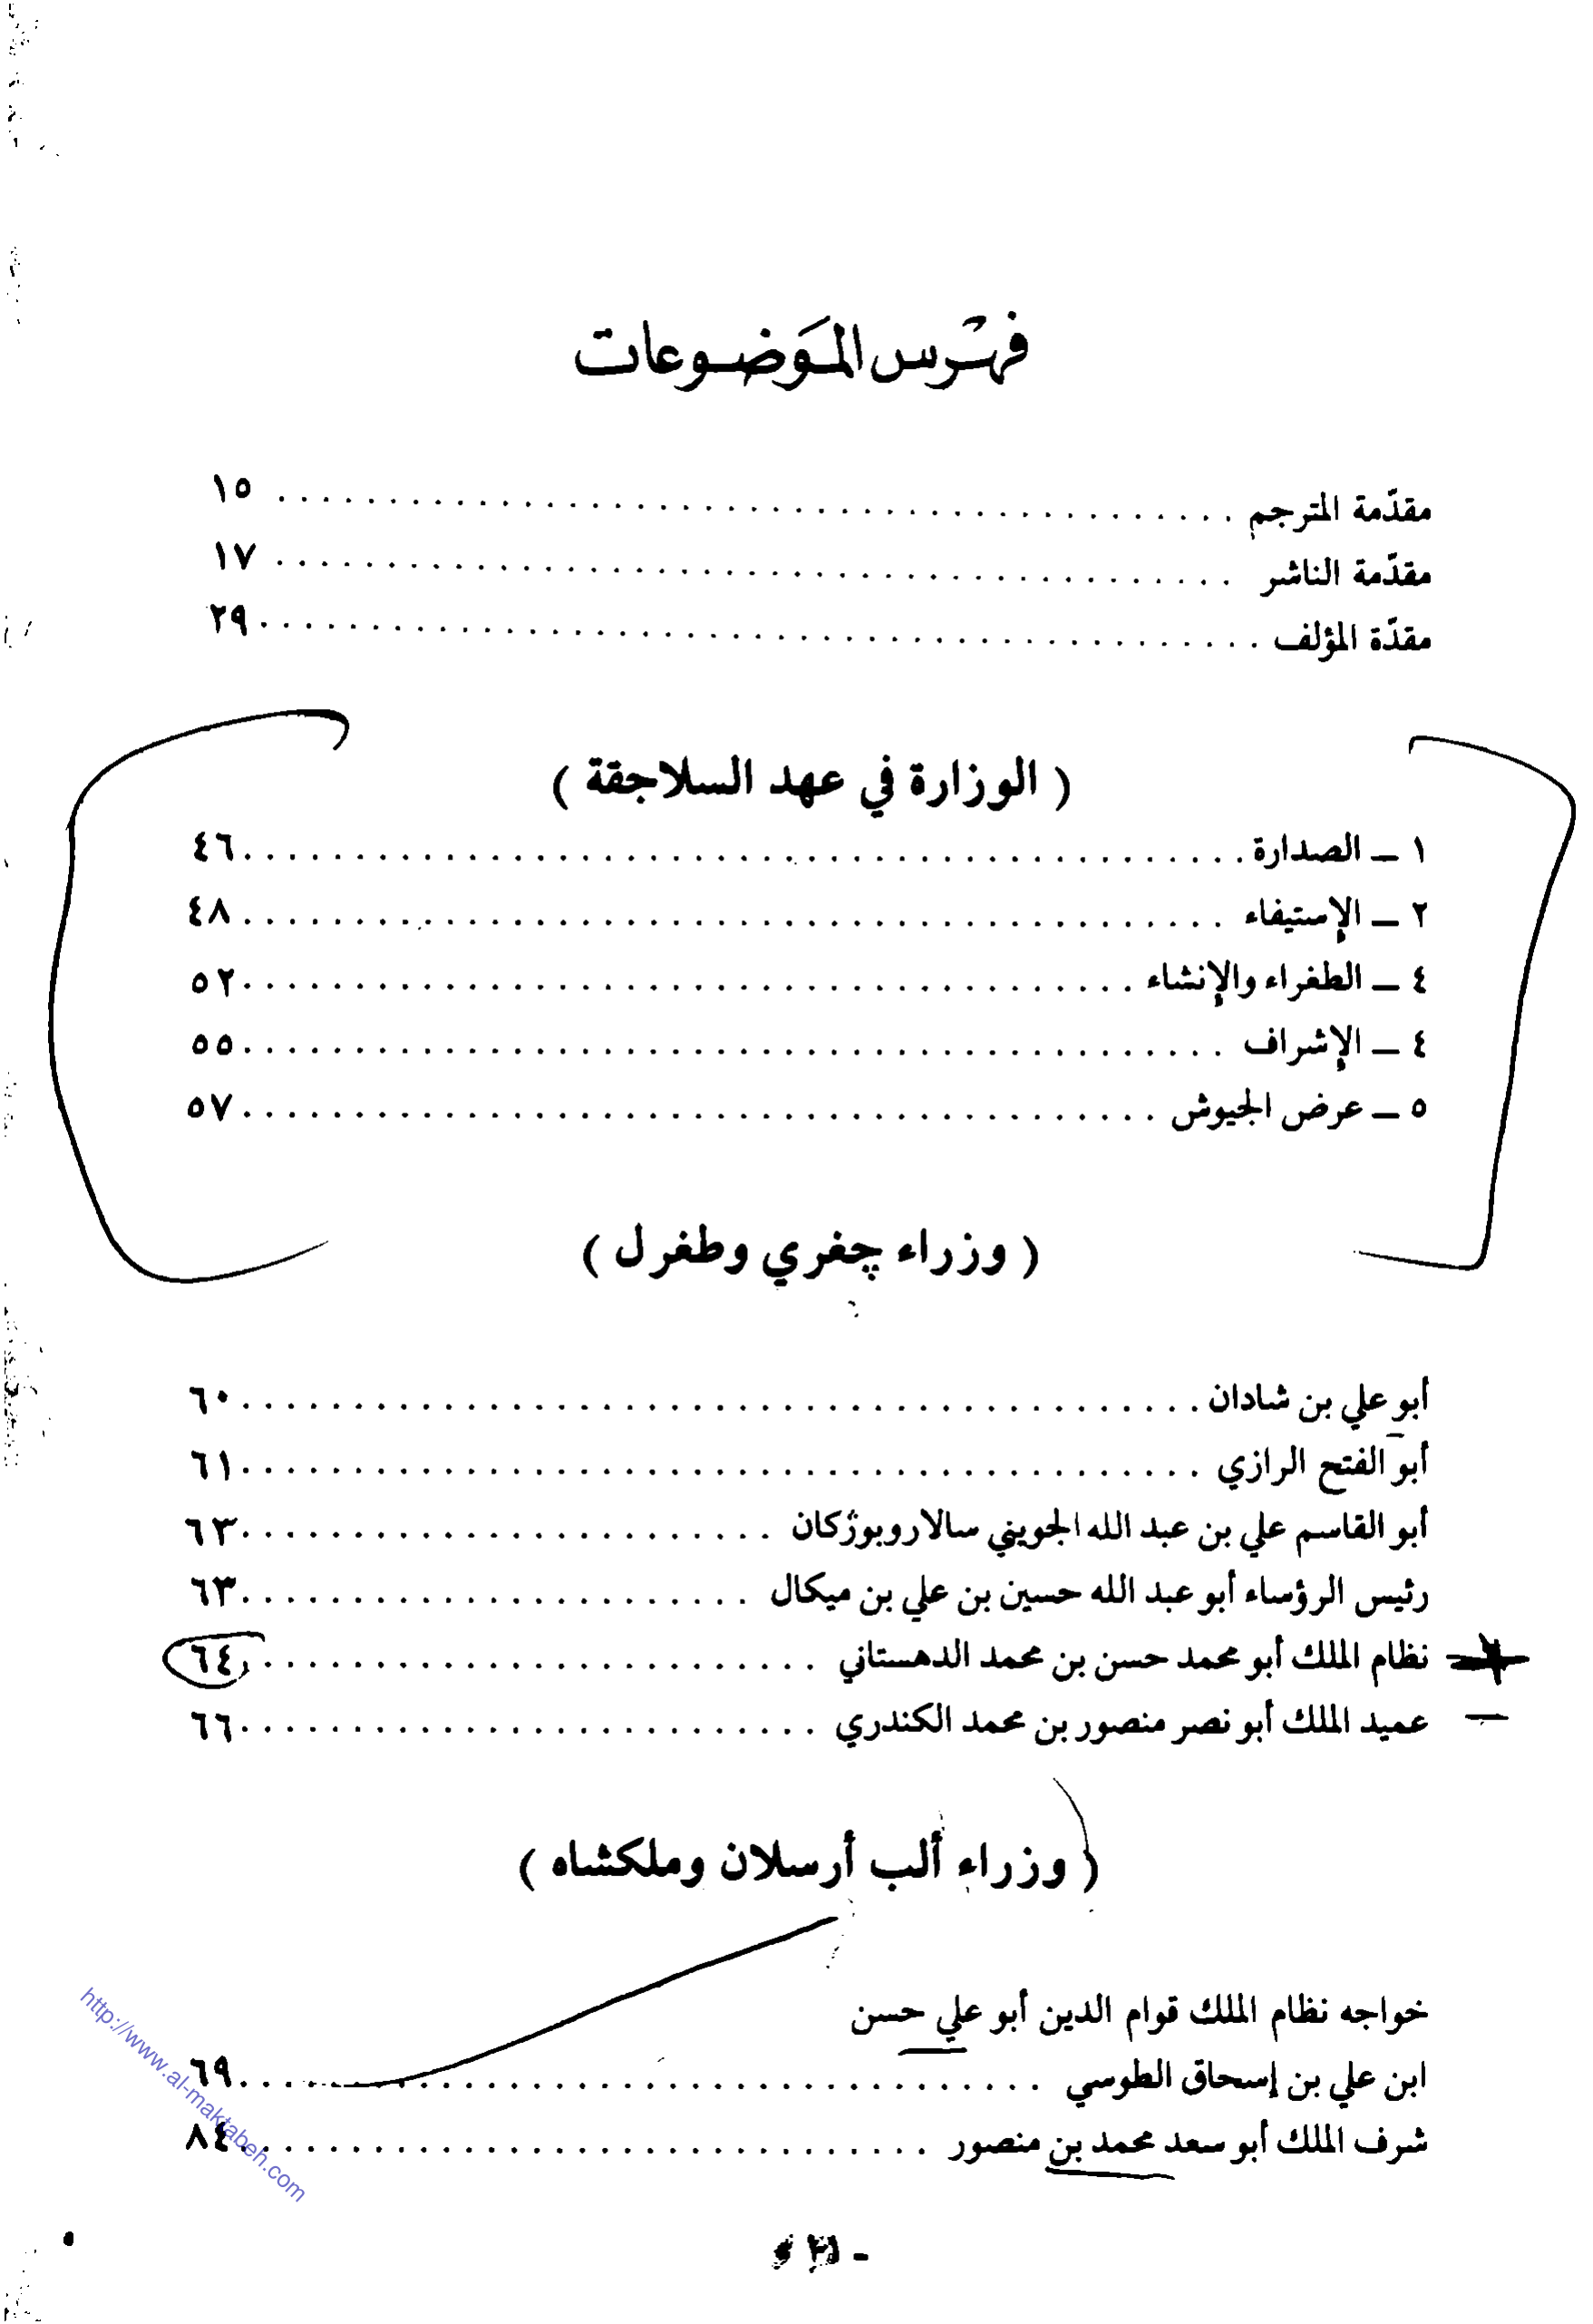 فهرس الموضوعات
مقدّمة المترجم ١٥
مقدّمة الناشر ١٧
مقدّة المؤلف ٢٩
( الوزارة في عهد السلاجقة )
١ ــ الصدارة ٤٦
٢ ــ الإستيفاء ٤٨
٤ ــ الطغراء والإنشاء ٥٢
٤ ــ الإشراف ٥٥
٥ ــ عرض الجيوش ٥٧
( وزراء چغري وطغرل )
أبو علي بن شادان ٦٠
أبو الفتح الرازي ٦١
أبو القاسم علي بن عبد الله الجويني سالاروبوژكان ٦٣
رئيس الرؤساء أبو عبد الله حسين بن علي بن ميكال ٦٣
نظام الملك أبو محمد حسن بن محمد الدهستاني ٦٤
عميد الملك أبو نصر منصور بن محمد الكندري ٦٦
( وزراء ألب أرسلان وملكشاه )
خواجه نظام الملك قوام الدين أبو علي حسن
ابن علي بن إسحاق الطوسي ٦٩
شرف الملك أبو سعد محمد بن منصور ٨٤
http://www.al-maktabeh.com